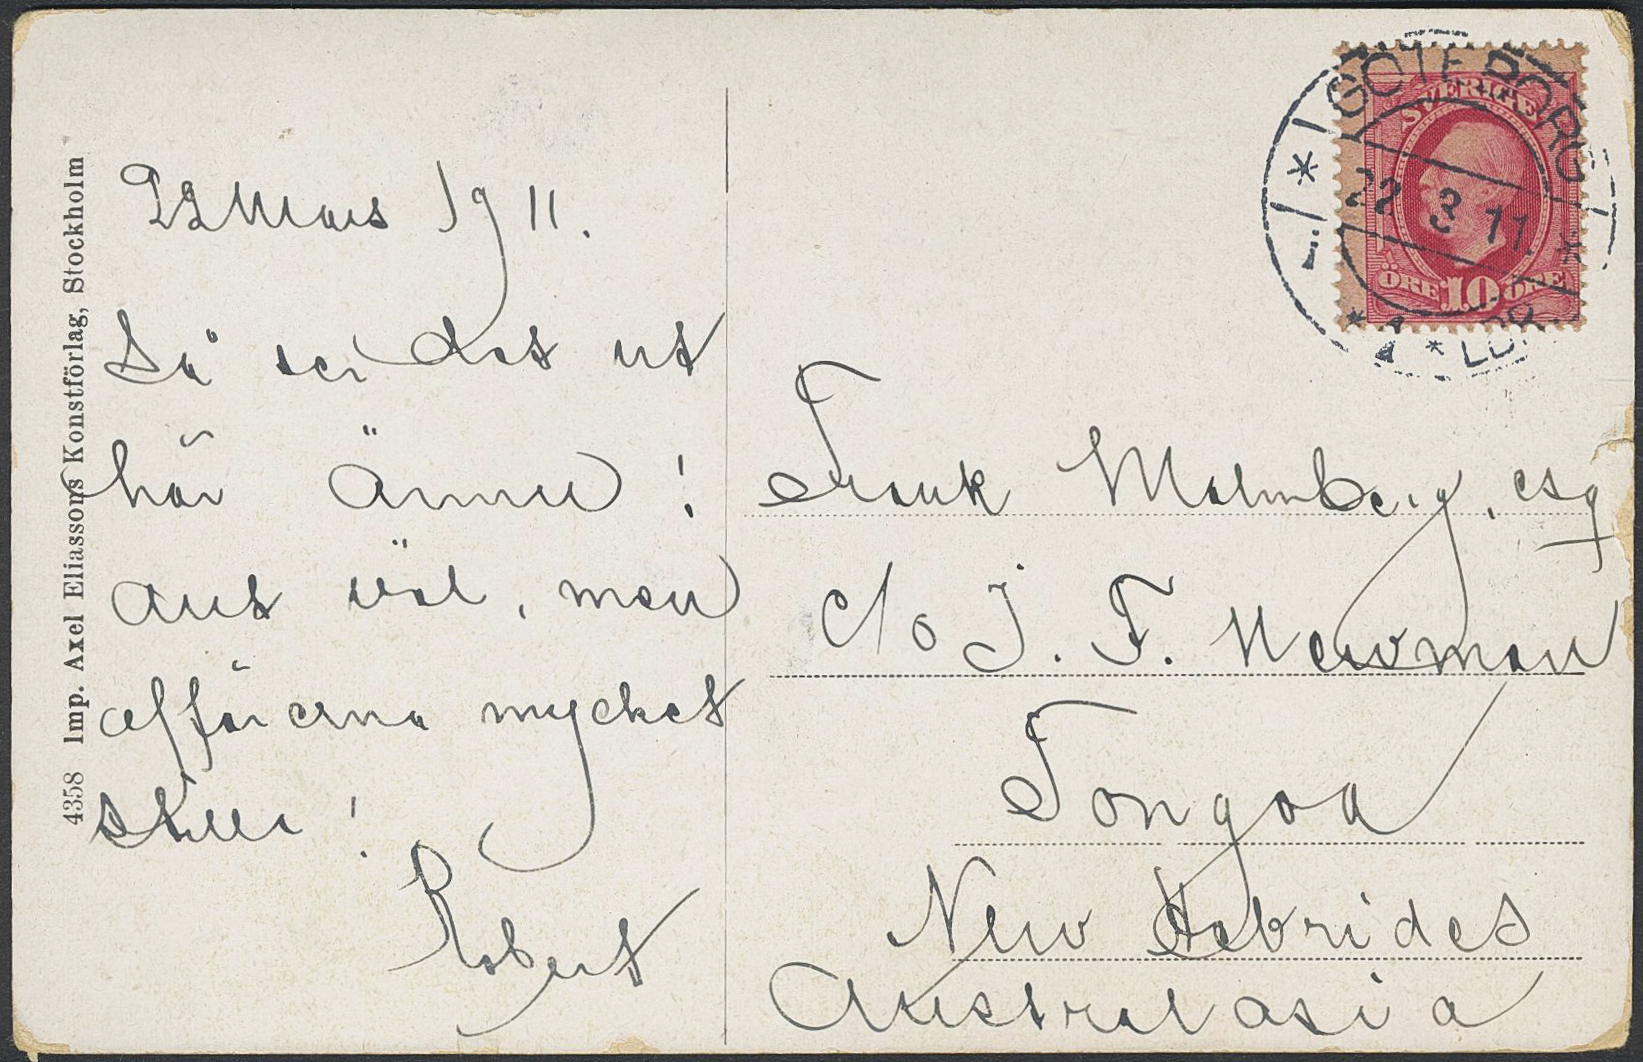 4358 Imp. Axel Eliassons Konstförlag, Stockholm
22 Mars 1911.
Så ser det ut
här ännu!
Allt väl, men
affärerna mycket
stilla!
Robert
GÖTEBORG
22 3 11
SVERIGE
ÖRE 10 ÖRE
Frank Malmberg, esq
c/o J. F. Newman
Tongoa
New Hebrides
Australasia